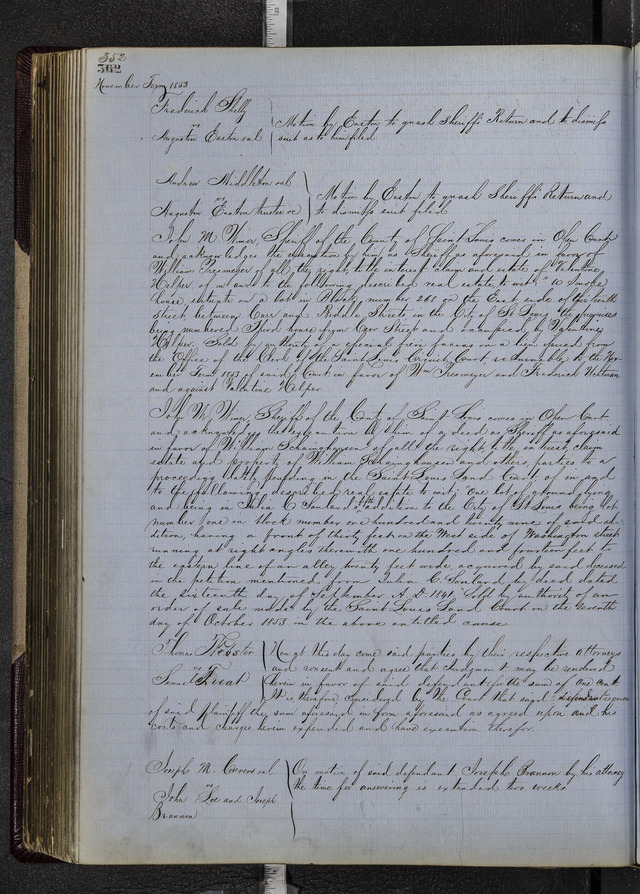 352
362
November Term 1853
Frederick Kelly
vs
Augustin Easton et al
Motion by Easton to quash Sheriff's Return and to dismiss
suit as to him filed
Andrew Middleton et al
vs
Augustin Easton trustee &c
Motion by Easton to quash Sheriff's Return and
to dismiss suit filed
John M Wimer, Sheriff of the County of Saint Louis comes in Open Court
and acknowledges the execution by him as Sheriff as aforesaid in favor of
William of all the right title interest claim and estate of Valentine
Helper of in and to the following described real estate to wit "A Smoke
house situate on a lot in Block number 260 on the East side of Seventh
street between Carr and Biddle Streets in the City of St Louis the premises
being numbered Third house from Carr Street and occupied by Valentine
Helper. Sold by authority of a special fieri facias on a lien issued from
the Office of the Clerk of the Saint Louis Circuit Court, returnable to the Nov-
ember Term 1853 of said Court in favor of Wm and Frederick
and against Valentine Helper
John M Wimer, Sheriff of the County of Saint Louis comes in Open Court
and acknowledges the execution by him of a deed as Sheriff as aforesaid
in favor of William of all the right title interest claim
estate and property of William and others, parties to a
proceeding lately pending in the Saint Louis Land Court of in and
to the following described real estate to wit; one lot of ground lying
and being in Julia C Soulard addition to the City of St Louis being lot
number one in block number one hundred and twenty nine of said ad-
dition having a front of thirty feet on the West side of Washington street
running at right angles therewith one hundred and fourteen feet to
the eastern line of an alley twenty feet wide acquired by said deceased
in the petition mentioned from Julia C Soulard by deed dated
the sixteenth day of September A.D 1841, Sold by authority of an
order of sale made by the Saint Louis Land Court on the seventh
day of October 1853 in the above entitled cause
Thomas Webster
vs
Samuel Treat
Now at this day come said parties by their respective attorneys
and consent and agree that Judgment may be rendered
herein in favor of said defendant for the sum of one cent
It is therefore considered by the Court that said defendant recover
of said Plaintiff the sum aforesaid in form aforesaid as agreed upon and his
costs and charges herein expended and have execution therefor
Joseph M. et al
vs
John Loe and Joseph
Brannon
On motion of said defendant Joseph Brannon by his attorney
the time for answering is extended two weeks